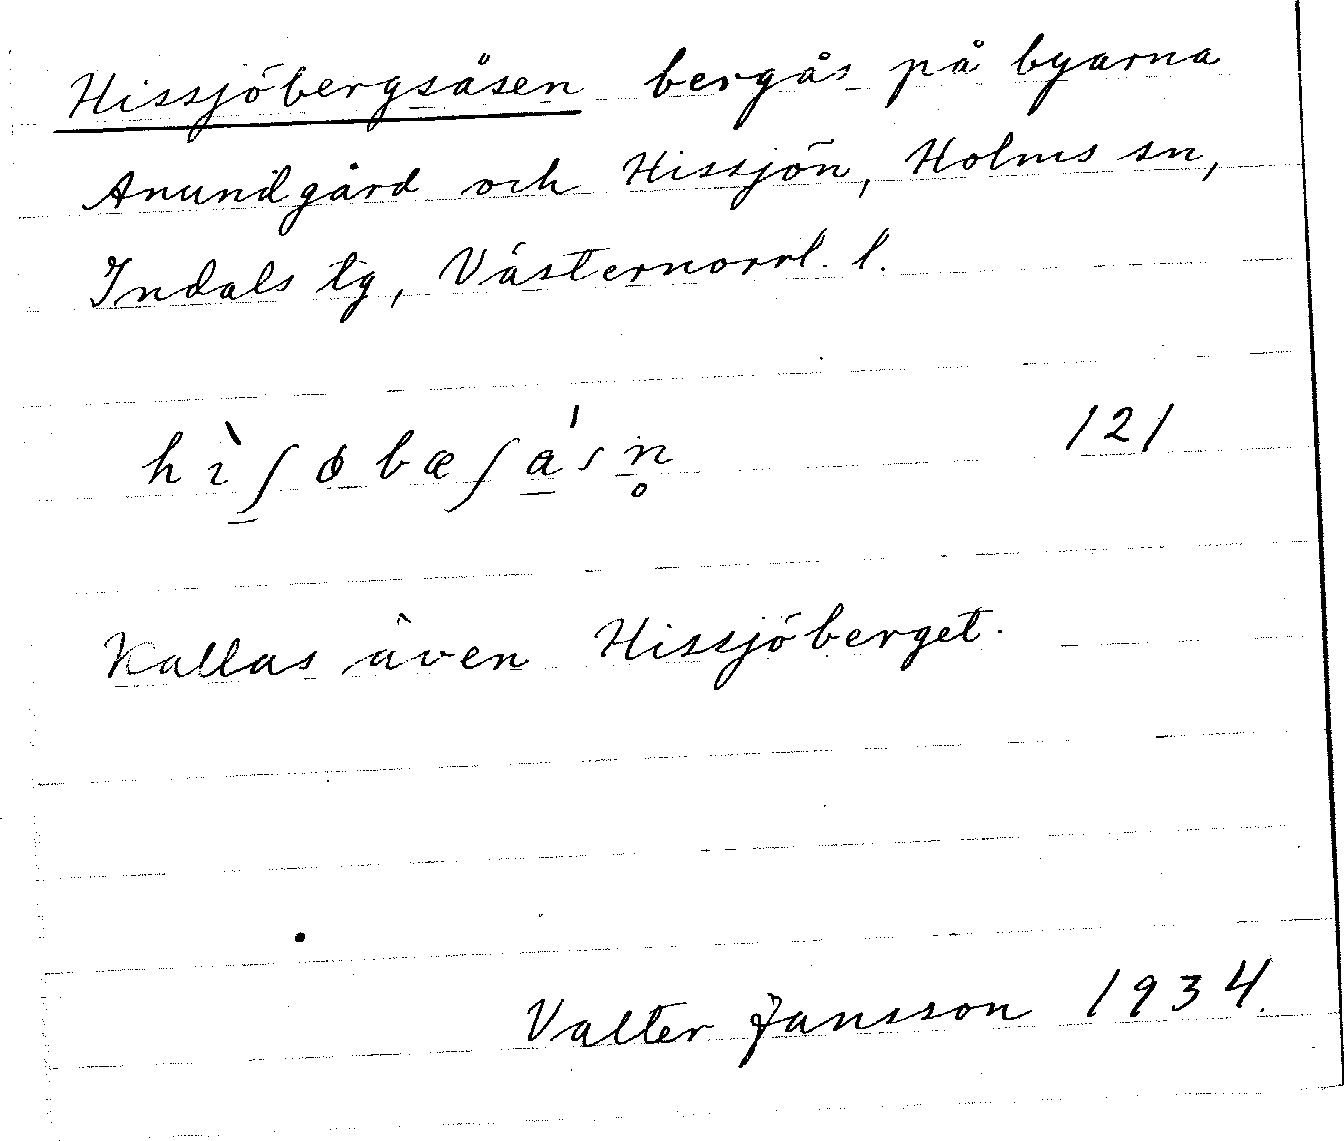 Hissjöbergsåsen bergås på byarna
Anundgård och Hissjön, Holms sn,
Indals tg, Västernorrl. l.
hìʃöbæʃa̠'sn̥ 121
Kallas även Hissjöberget.
Valter Jansson 1934.